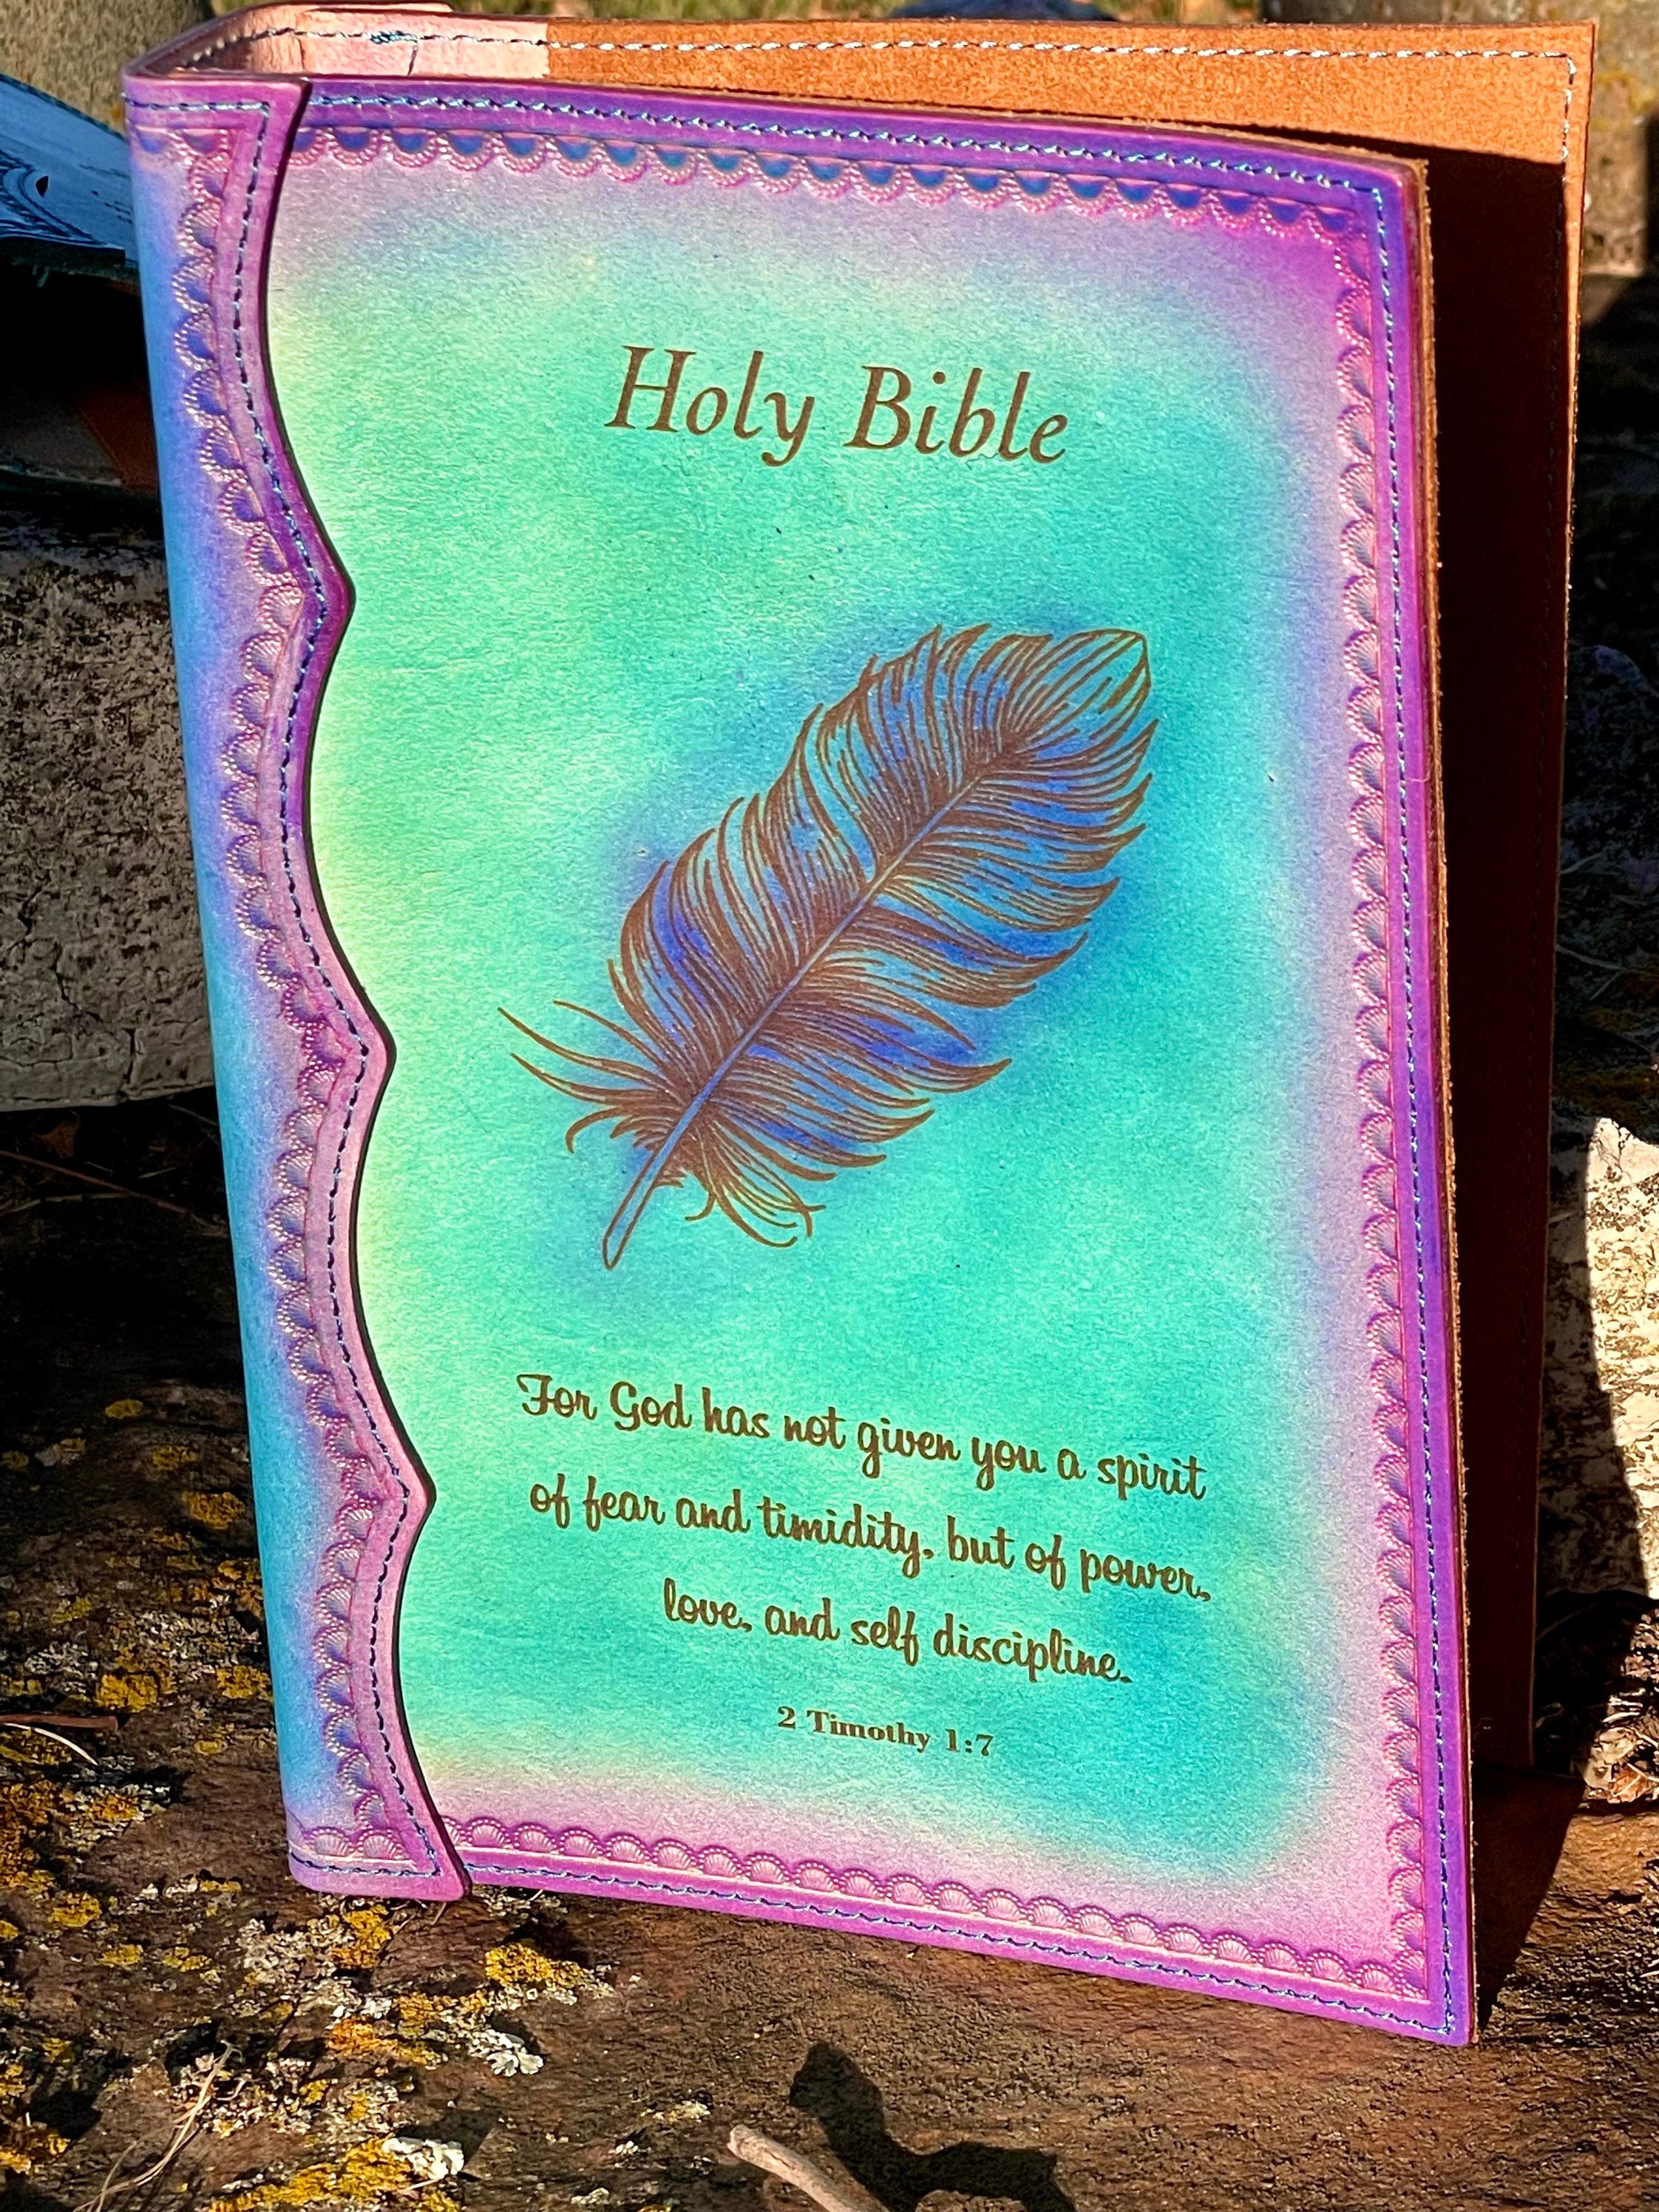 Holy Bible
For God has not given you a spirit
of fear and timidity, but of power,
love, and self discipline.
2 Timothy 1:7